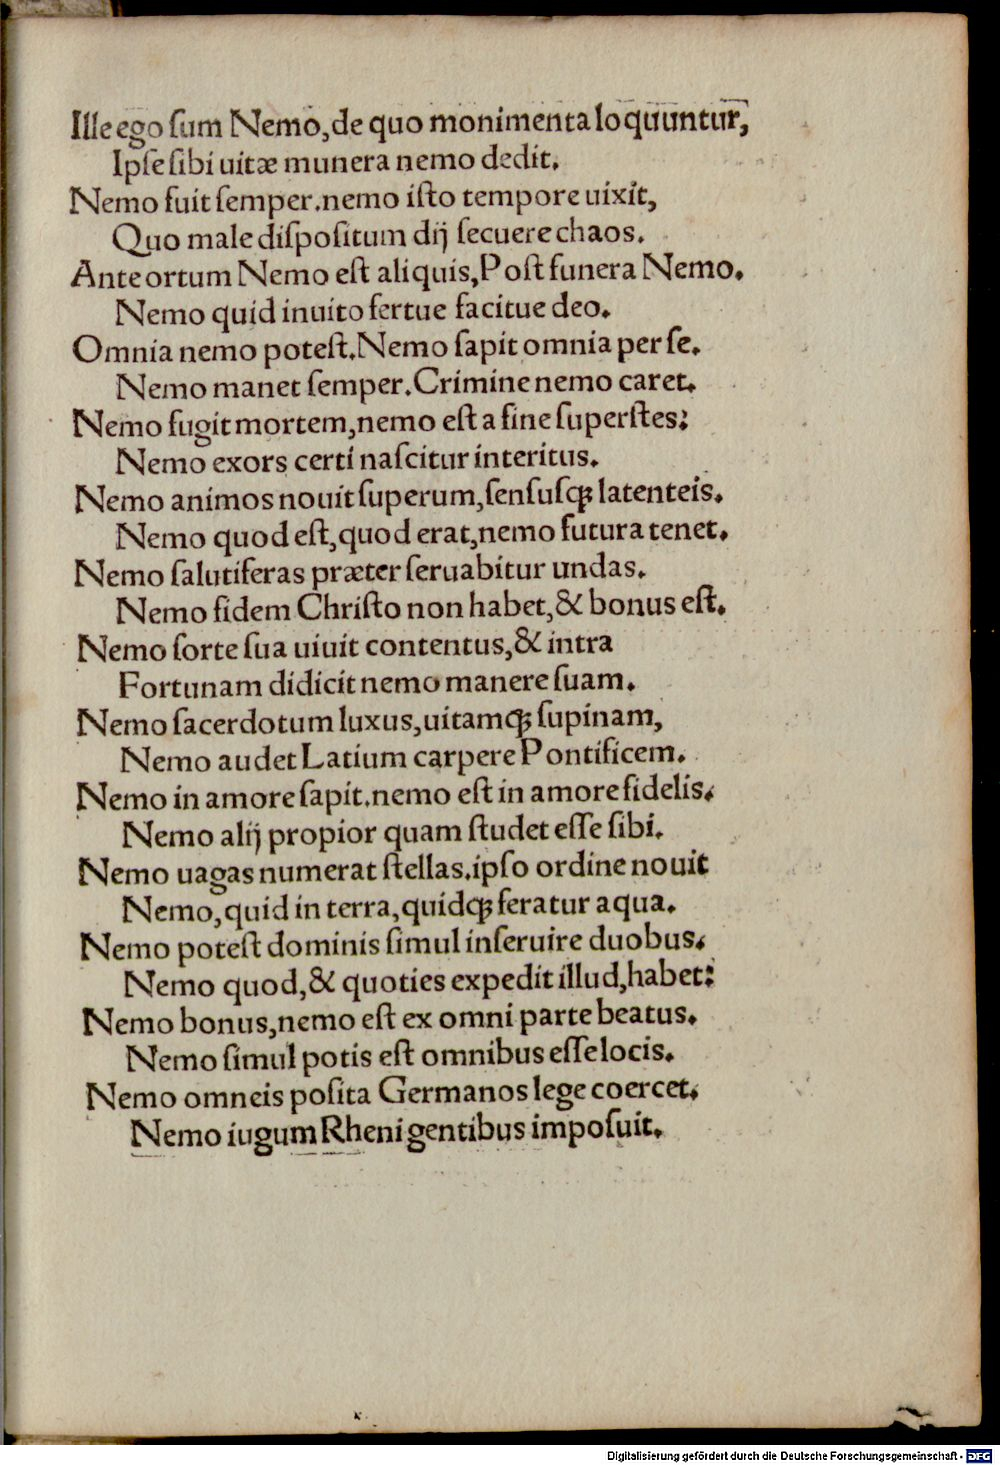 Ille ego ſum Nemo, de quo monimenta loquuntur,
Ipſe ſibi uitæ munera nemo dedit.
Nemo fuit ſemper. nemo iſto tempore uixit,
Quo male diſpoſitum dij ſecuere chaos.
Ante ortum Nemo eſt aliquis, Poſt funera Nemo.
Nemo quid inuito fertue facitue deo.
Omnia nemo poteſt. Nemo ſapit omnia per ſe.
Nemo manet ſemper. Crimine nemo caret.
Nemo fugit mortem, nemo eſt a fine ſuperſtes:
Nemo exors certi naſcitur interitus.
Nemo animos nouit ſuperum, ſenſuſq; latenteis.
Nemo quod eſt, quod erat, nemo futura tenet.
Nemo ſalutiferas præter ſeruabitur undas.
Nemo fidem Chriſto non habet, & bonus eſt.
Nemo ſorte ſua uiuit contentus, & intra
Fortunam didicit nemo manere ſuam.
Nemo ſacerdotum luxus, uitamq; ſupinam,
Nemo audet Latium carpere Pontificem.
Nemo in amore ſapit. nemo eſt in amore fidelis.
Nemo alij propior quam ſtudet eſſe ſibi.
Nemo uagas numerat ſtellas. ipſo ordine nouit
Nemo, quid in terra, quidq; feratur aqua.
Nemo poteſt dominis ſimul inſeruire duobus.
Nemo quod, & quoties expedit illud, habet:
Nemo bonus, nemo eſt ex omni parte beatus.
Nemo ſimul potis eſt omnibus eſſe locis.
Nemo omneis poſita Germanos lege coercet.
Nemo iugum Rheni gentibus impoſuit.
Digitalisierung gefördert durch die Deutsche Forschungsgemeinschaft - DFG